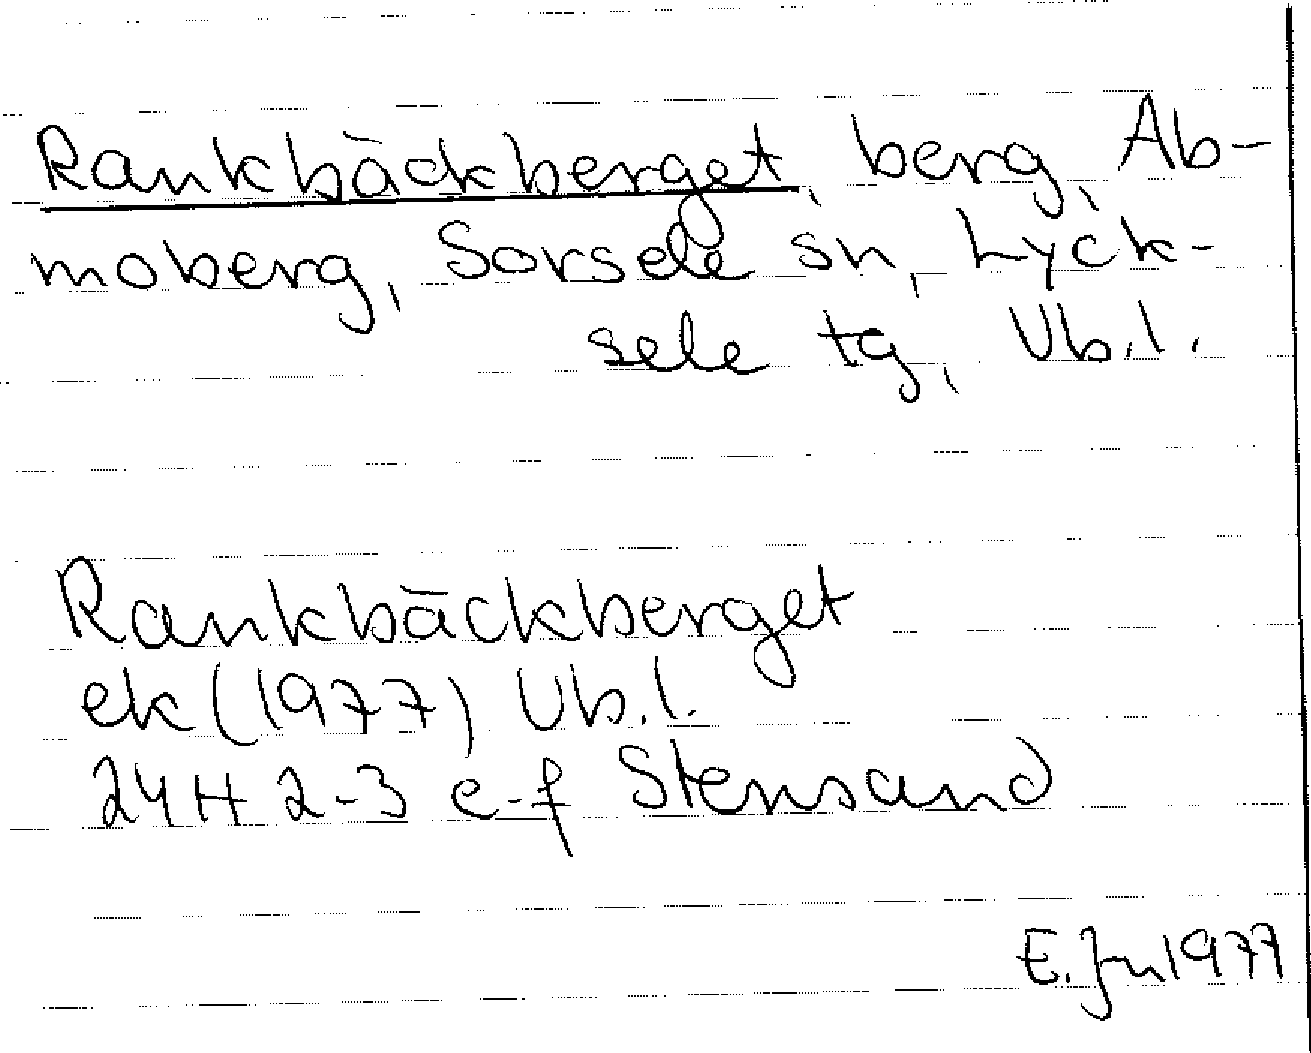 Rankbäckberget, berg, Ab-
moberg, Sorsele sn, Lyck-
sele tg, Vb.l.
Rankbäckberget
ek (1977) Vb.l.
24H 2-3 e-f Stensund
E. Jn 1977